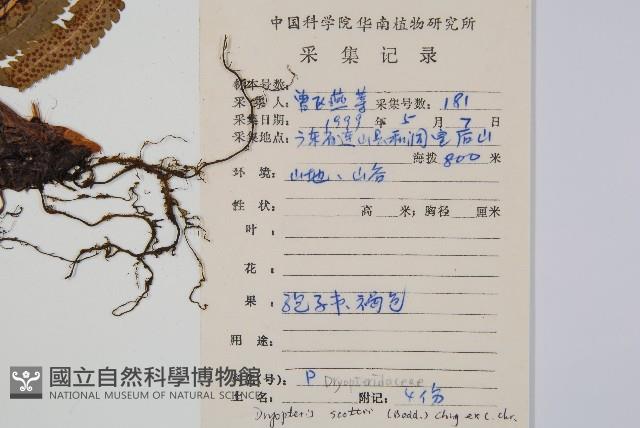 中国科学院华南植物研究所
采集记录
标本号数:
采集人: 曾飞燕等 采集号数: 181
采集日期: 1999 年 5 月 7 日
采集地点: 广东省连山县和洞皇后山
海拨 800 米
环境: 山地、山谷
性状: 高 米; 胸径 厘米
叶:
花:
果: 孢子, 褐色
用途:
(号): P Dryopteridaceae
土名: 附记: 4份
Dryopteris scottii (Bedd.) Ching ex C. Chr.
國立自然科學博物館
NATIONAL MUSEUM OF NATURAL SCIENCE